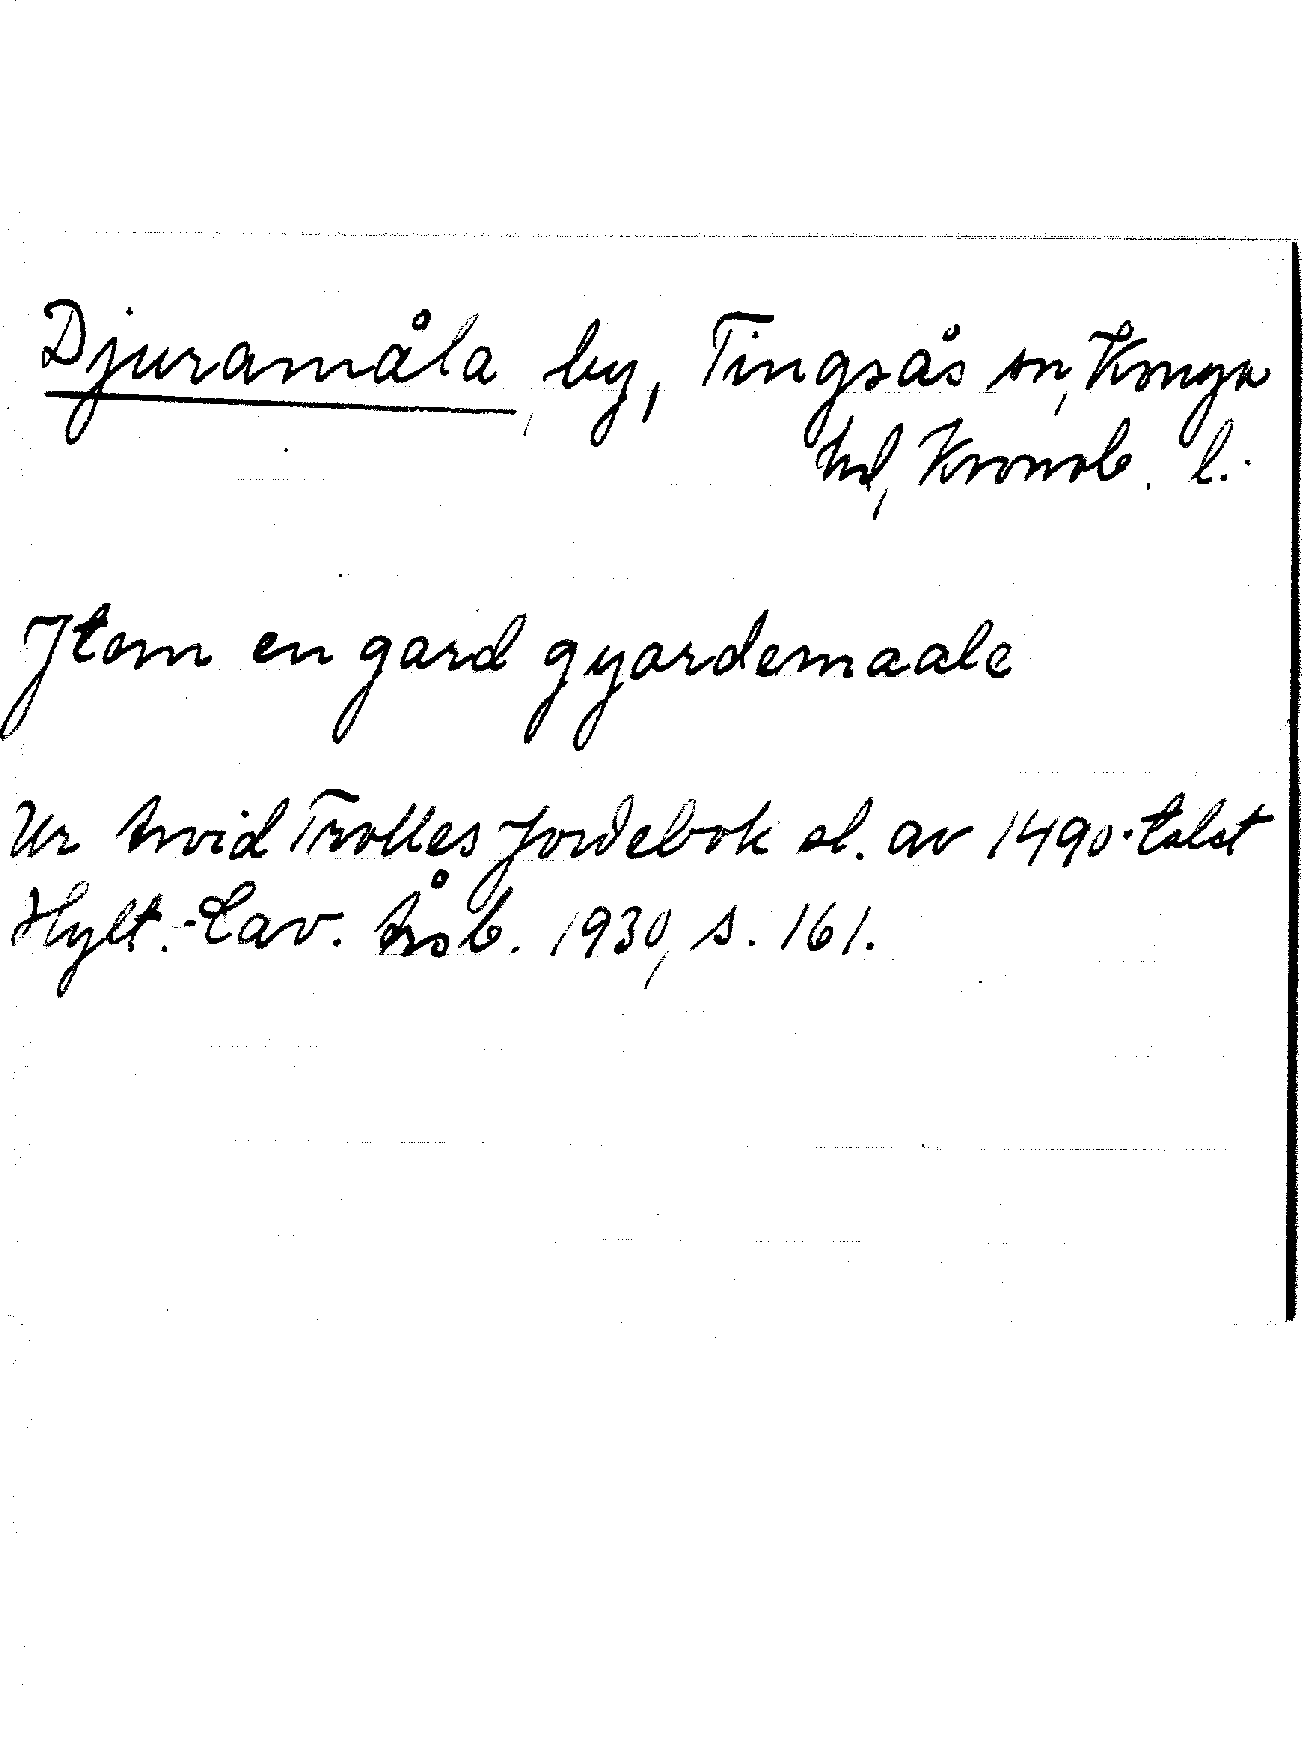 Djuramåla, by, Tingsås sn, Konga
hd, Kronob. l.
Item en gard gyardemaale
Ur Arvid Trolles Jordebok sl. av 1490-talet
Hylt.-Cav. Årsb. 1930, s. 161.